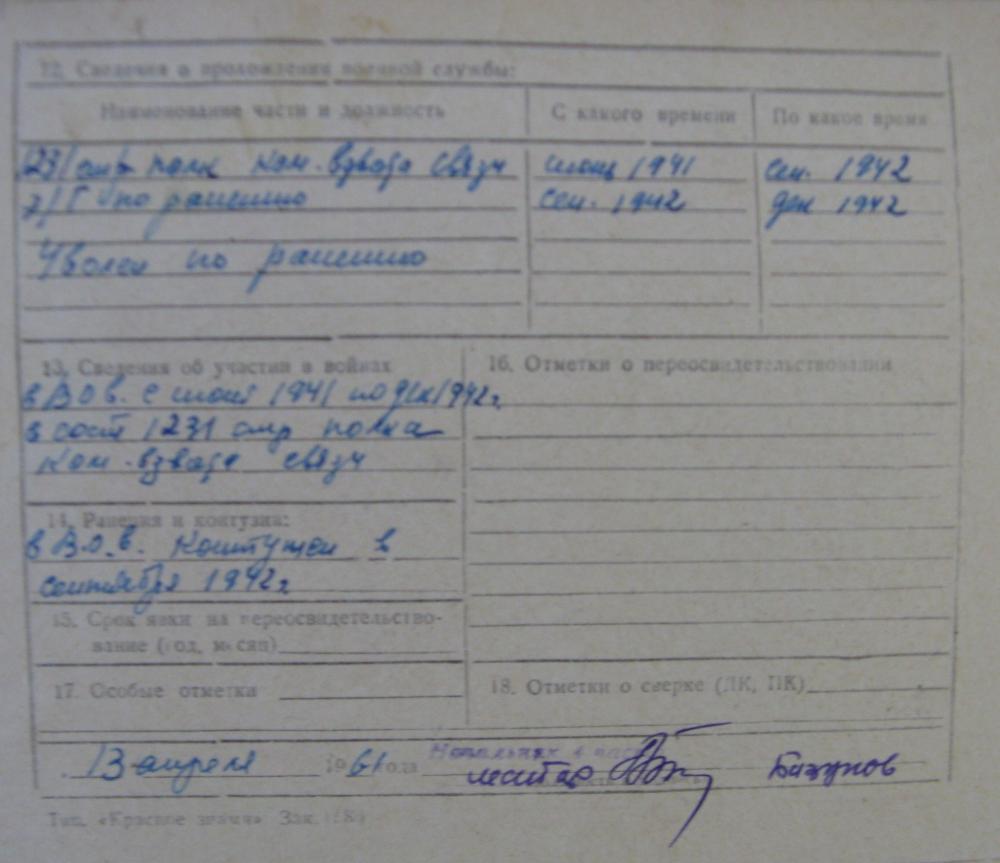 12. Сведения о прохождении военной службы:
Наименование части и должность С какого времени По какое время
1231 стр полк ком. взвода связи июнь 1941 сен. 1942
э/Г по ранению сен. 1942 дек 1942
Уволен по ранению
13. Сведения об участии в войнах
в ВОв. с июня 1941 по дек 1942 г.
в сост 1231 стр полка
ком. взвода связи
14. Ранения и контузии:
в В.о.в. контужен в
сентября 1942 г
15. Срок явки на переосвидетельство-
вание (год, месяц)
16. Отметки о переосвидетельствовании
17. Особые отметки
18. Отметки о сверке (ЛК, ПК)
13 апреля 1961 года Начальник 4 части
майор
Тип. «Красное знамя» Зак.